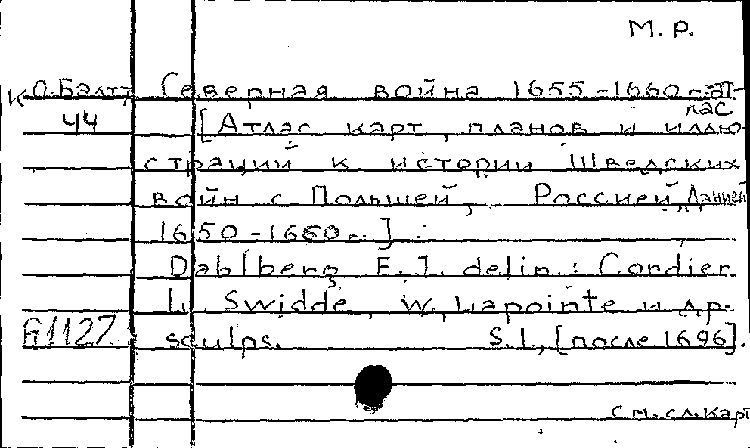 М. Р.
К О. Балт. Северная война 1655-1660 - ат-
лас
44 [Атлас карт, планов и иллю-
страций к истории Шведских
войн с Польшей, Россией, Данией
1650-1660 г.]
Dahlberg E. J. delin: Cordier
L. Swidde, W. Lapointe и др.
А1127 sculps. S.l., [после 1696].
См. сл. карт